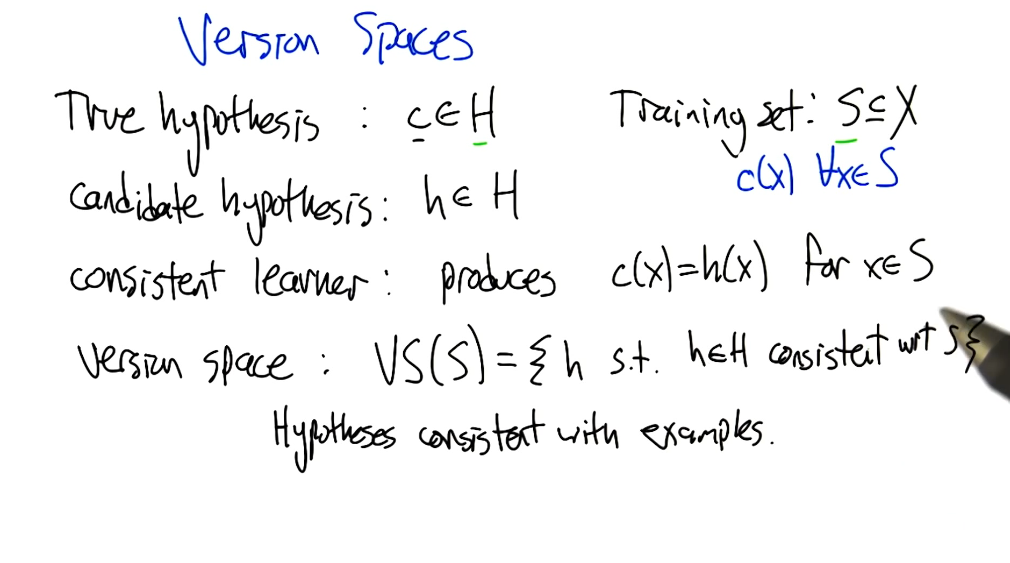 Version Spaces
True hypothesis : c ∈ H
Training set: S ⊆ X
c(x) ∀x∈S
candidate hypothesis: h ∈ H
consistent learner: produces c(x)=h(x) for x∈S
version space : VS(S) = { h s.t. h∈H consistent wrt S}
Hypotheses consistent with examples.